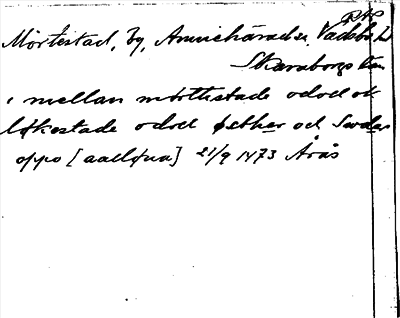 Mörtestad, by, Amnehärads s. Vadsbo hd
Skaraborgs län
i mellan mørttestade odod ok
løkestade odod østher och Swder
oppo [aaelfwa] 21/9 1473 Årås